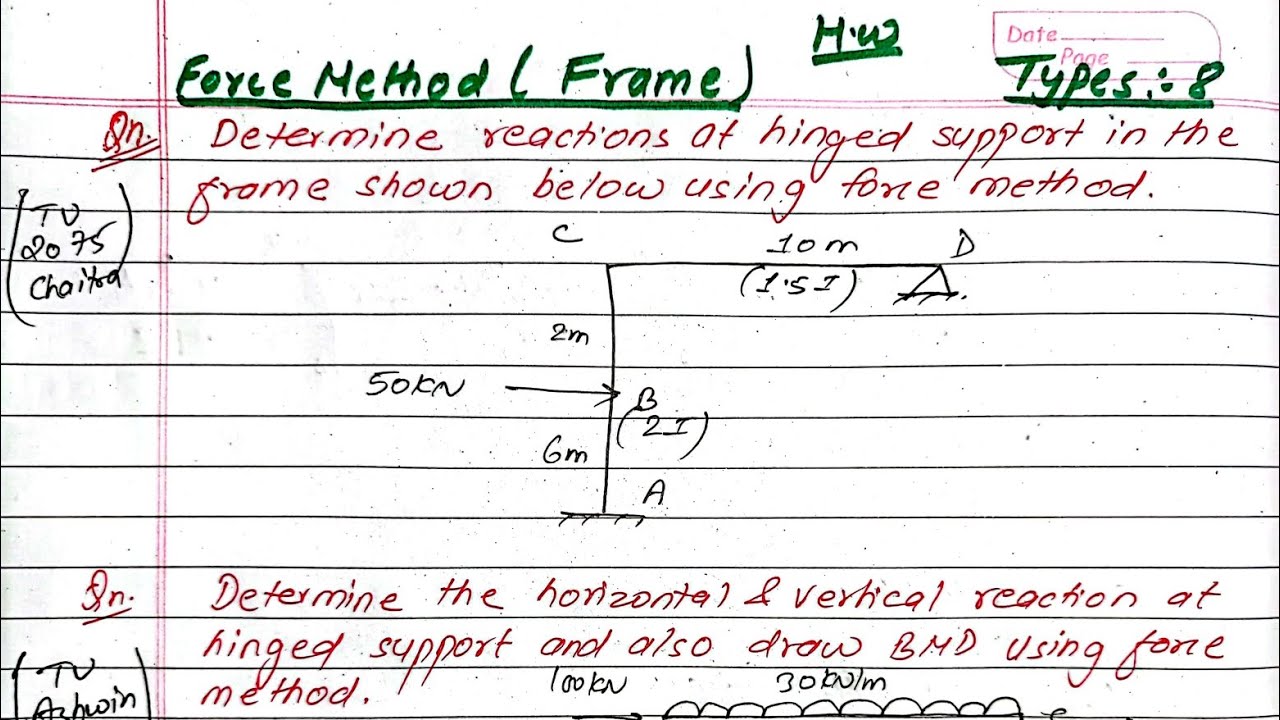 H.W
Date
Page
Force Method ( Frame )
Types:- 8
Qn. Determine reactions at hinged support in the
frame shown below using force method.
( TU
2075
Chaitra )
C
10 m
D
(1.5I)
2m
50KN
B
(2I)
6m
A
Qn. Determine the horizontal & vertical reaction at
hinged support and also draw BMD using force
method.
( TU
Ashwin )
100KN
30kN/m